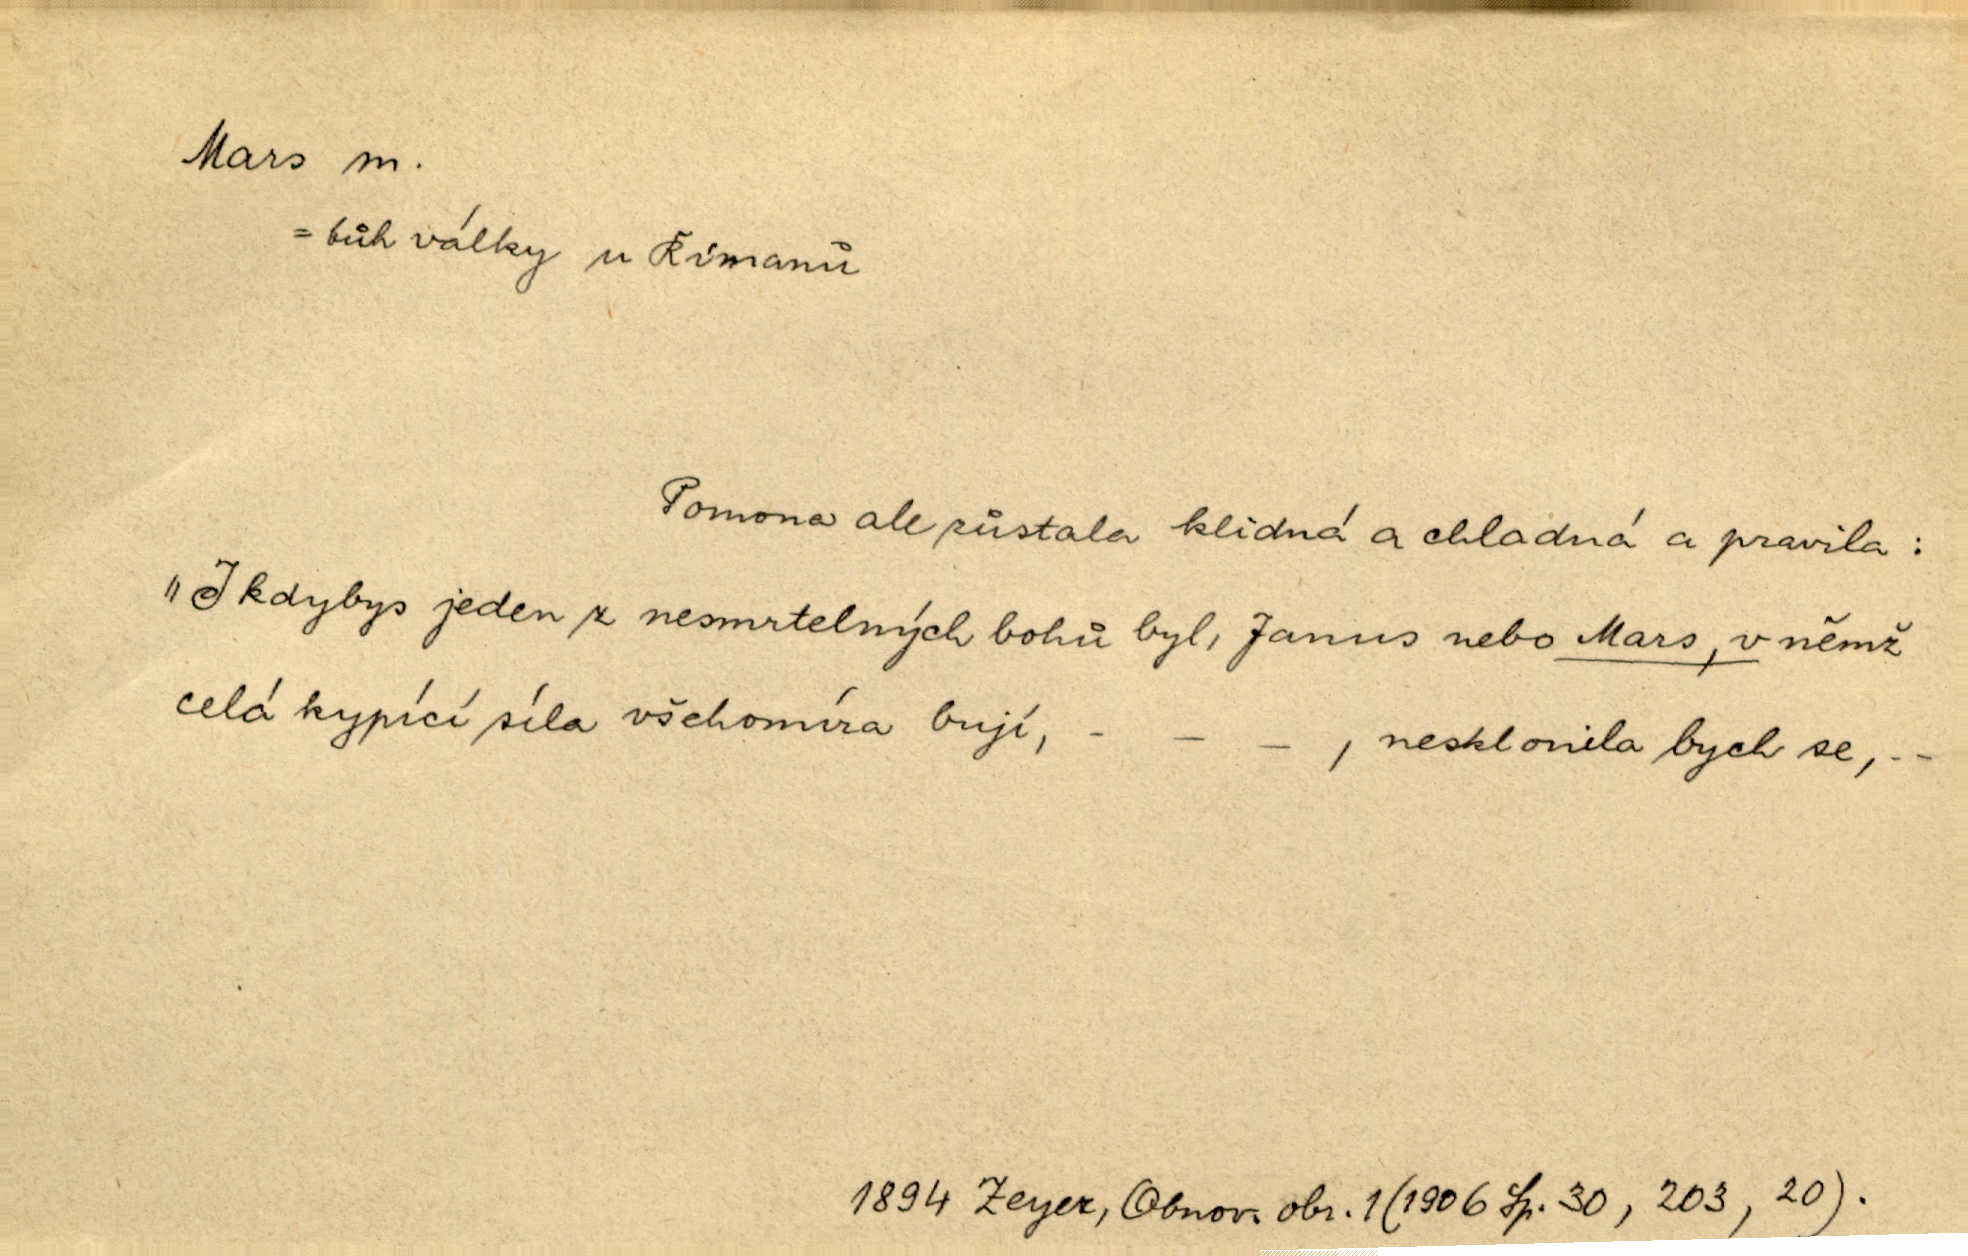 Mars m.
= bůh války u Římanů
Pomona ale zůstala klidná a chladná a pravila :
"I kdybys jeden z nesmrtelných bohů byl, Janus nebo Mars, v němž
celá kypící síla všehomíra bují, - - - , nesklonila bych se, - -
1894 Zeyer, Obnov. obr. 1 (1906 Sp. 30, 203, 20).